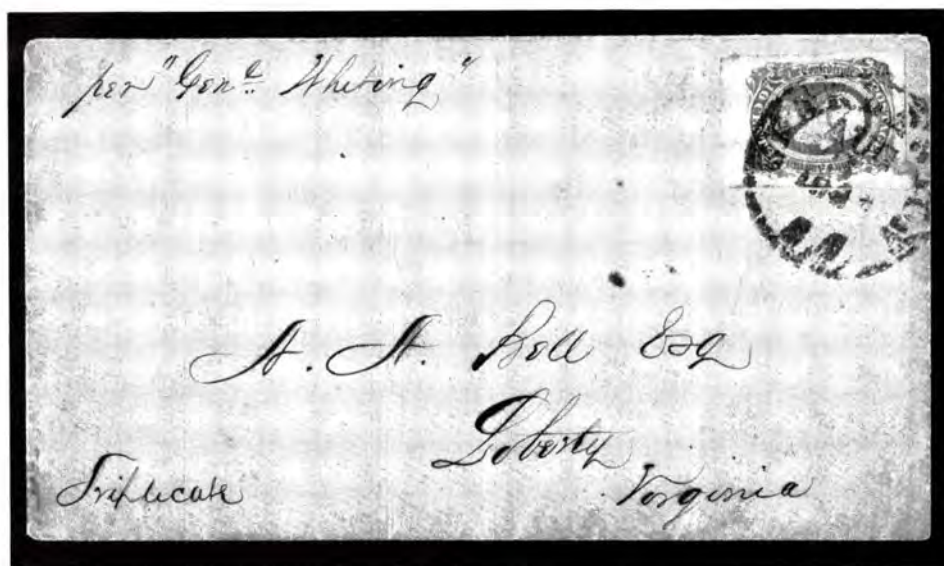 per "Genl. Whiting"
A. A. Bell Esq
Liberty
Virginia
Triplicate